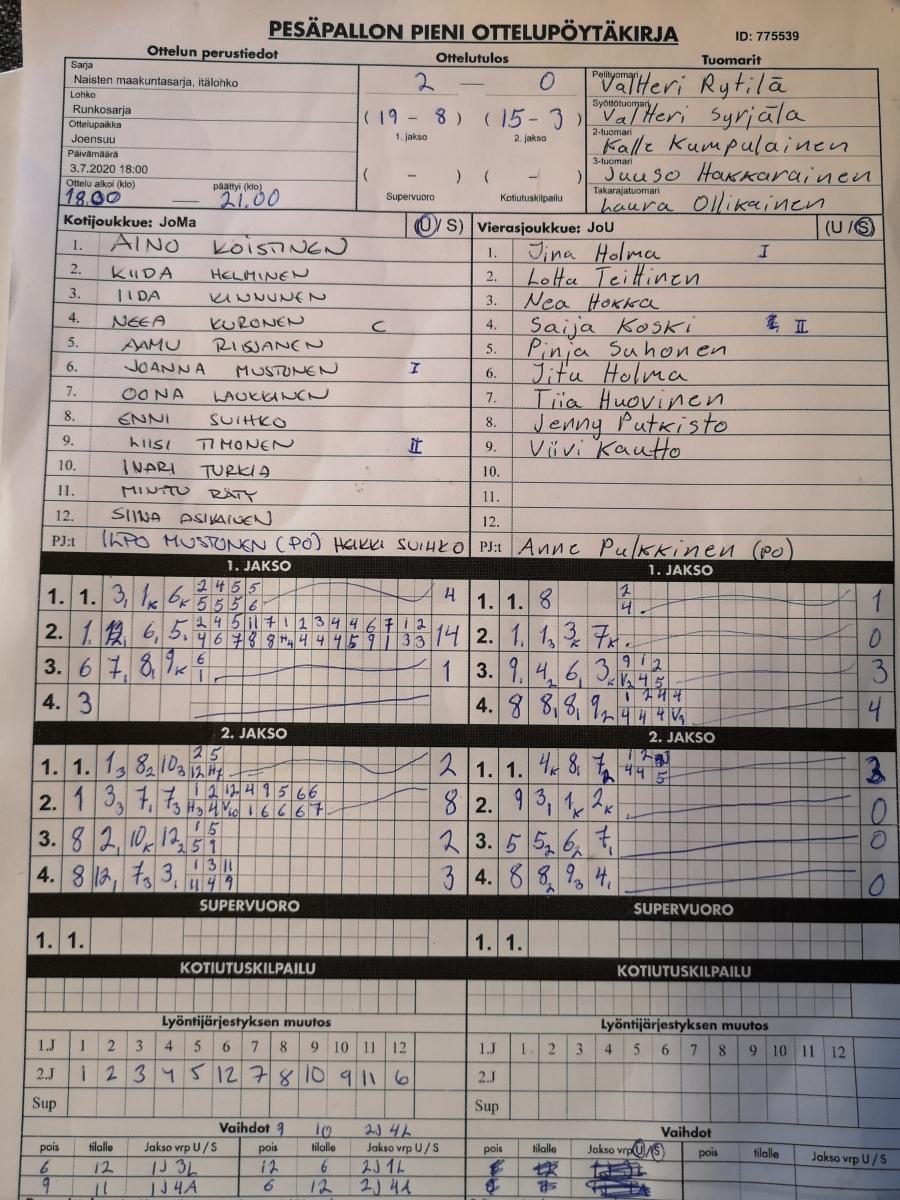 PESÄPALLON PIENI OTTELUPÖYTÄKIRJA ID: 775539
Ottelun perustiedot Ottelutulos Tuomarit
Sarja
Naisten maakuntasarja, itälohko
Lohko
Runkosarja
Ottelupaikka
Joensuu
Päivämäärä
3.7.2020 18:00
Ottelu alkoi (klo) päättyi (klo)
18.00 — 21.00
2 — 0
( 19 - 8 ) ( 15 - 3 )
1. jakso 2. jakso
( - ) ( - )
Supervuoro Kotiutuskilpailu
Pelituomari Valtteri Rytilä
Syöttötuomari Valtteri Syrjälä
2-tuomari Kalle Kumpulainen
3-tuomari Juuso Hakkarainen
Takarajatuomari Laura Ollikainen
Kotijoukkue: JoMa (U / S)
1. AINO KOISTINEN
2. KIIDA HELMINEN
3. IIDA KINNUNEN
4. NEEA KURONEN C
5. AAMU RISSANEN
6. JOANNA MUSTONEN I
7. OONA LAUKKINEN
8. ENNI SUIHKO
9. LIISI TIMONEN II
10. INARI TURKIA
11. MINTTU RÄTY
12. SIINA ASIKAINEN
PJ:t ILPO MUSTONEN (PO) HEIKKI SUIHKO
Vierasjoukkue: JoU (U / S)
1. Jina Holma I
2. Lotta Teittinen
3. Nea Hokka
4. Saija Koski II
5. Pinja Suhonen
6. Jitu Holma
7. Tiia Huovinen
8. Jenny Putkisto
9. Viivi Kautto
10.
11.
12.
PJ:t Anne Pulkkinen (PO)
1. JAKSO
1. 1. 3, 1K 6K 2 4 5 5 4
5 5 5 6
2. 1. 6, 5. 14
3. 6 7, 8, 9K 6 1
1.
4. 3
1. JAKSO
1. 1. 8 2 1
4.
2. 1, 1, 3K 7K. 0
3. 9, 4₂ 6, 3K 9 1 2 3
4. 8 8, 8, 9₂ 1 2 4 4 4
2. JAKSO
1. 1. 1₃ 8₂ 10₃ 2 5 2
2. 1 3₃ 7, 7₃ 1 2 12 4 9 5 6 6 8
3. 8 2, 10K 12₂ 1 5 2
5 9
4. 8 12, 7₃ 3, 1 3 11 3
11 4 9
2. JAKSO
1. 1. 4K 8, 7₂ 3
2. 9 3, 1K 2K 0
3. 5 5₂ 6₂ 7, 0
4. 8 8₂ 9₃ 4, 0
SUPERVUORO SUPERVUORO
1. 1. 1. 1.
KOTIUTUSKILPAILU KOTIUTUSKILPAILU
Lyöntijärjestyksen muutos
1.J 1 2 3 4 5 6 7 8 9 10 11 12
2.J 1 2 3 4 5 12 7 8 10 9 11 6
Sup
Lyöntijärjestyksen muutos
1.J 1 2 3 4 5 6 7 8 9 10 11 12
2.J
Sup
Vaihdot 9 10 2J 4L
pois tilalle Jakso vrp U / S pois tilalle Jakso vrp U / S
6 12 1J 3L 12 6 2J 1L
9 11 1J 4A 6 12 2J 4A
Vaihdot
pois tilalle Jakso vrp U / S pois tilalle Jakso vrp U / S